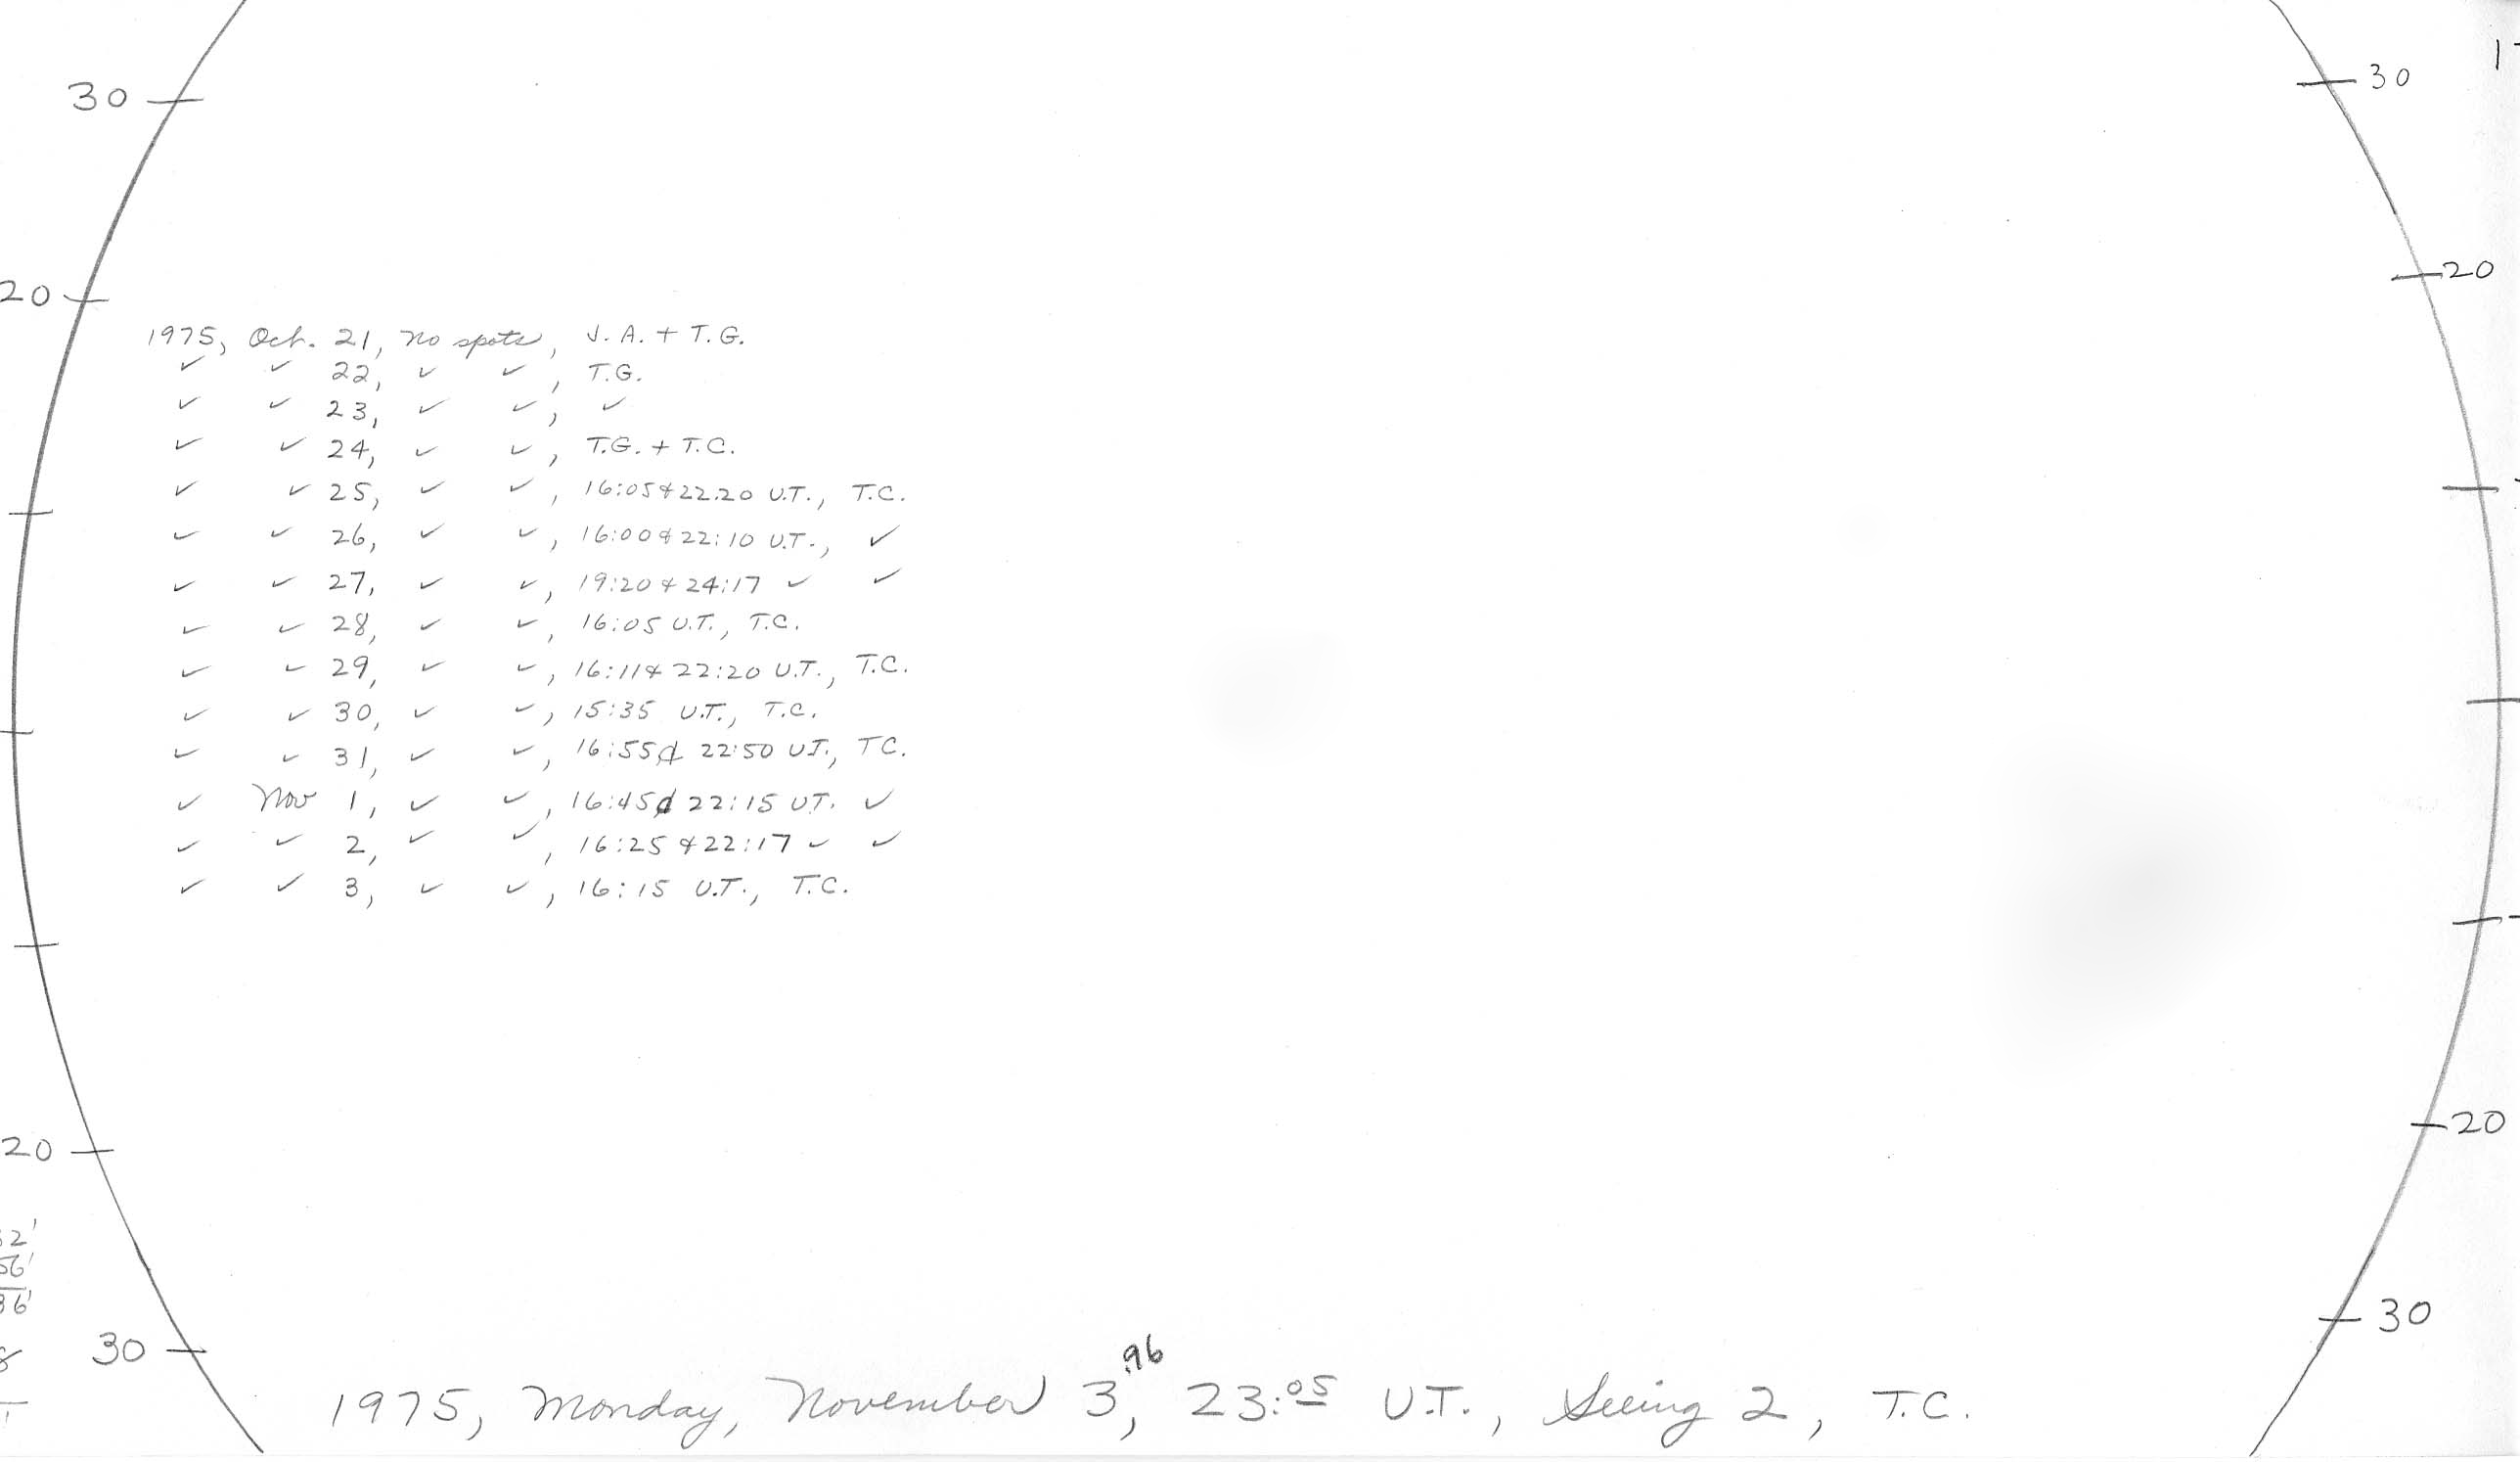 30
30
20
20
1975, Oct. 21, No spots, J. A. + T.G.
✓ ✓ 22, ✓ ✓, T.G.
✓ ✓ 23, ✓ ✓, ✓
✓ ✓ 24, ✓ ✓, T.G. + T.C.
✓ ✓ 25, ✓ ✓, 16:05 & 22.20 U.T., T.C.
✓ ✓ 26, ✓ ✓, 16:00 & 22:10 U.T., ✓
✓ ✓ 27, ✓ ✓, 19:20 & 24:17 ✓ ✓
✓ ✓ 28, ✓ ✓, 16:05 U.T., T.C.
✓ ✓ 29, ✓ ✓, 16:11 & 22:20 U.T., T.C.
✓ ✓ 30, ✓ ✓, 15:35 U.T., T.C.
✓ ✓ 31, ✓ ✓, 16:55 & 22:50 U.T., TC.
✓ Nov 1, ✓ ✓, 16:45 & 22:15 UT. ✓
✓ ✓ 2, ✓ ✓, 16:25 & 22:17 ✓ ✓
✓ ✓ 3, ✓ ✓, 16:15 U.T., T.C.
20
20
30
30
1975, Monday, November 3.96, 23:05 U.T., Seeing 2, T.C.